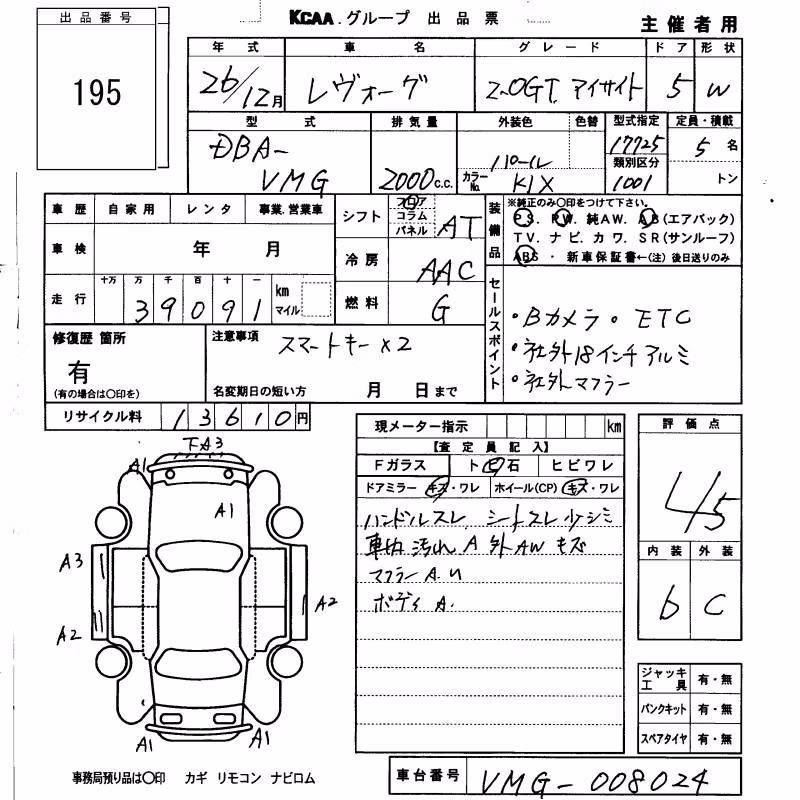 出品番号
195
KCAA.グループ 出品票
主催者用
年式 車名 グレード ドア 形状
26/12月 レヴォーグ 2.0GT アイサイト 5 W
型式 排気量 外装色 色替 型式指定 定員・積載
DBA-VMG 2000c.c. パール 17725 5名
カラーNo. K1X 類別区分 1001 トン
車歴 自家用 レンタ 事業.営業車
シフト フロア コラム パネル AT
装備品
※純正のみ〇印をつけて下さい。
PS. PW. 純AW. AB(エアバック)
TV. ナビ. カワ. SR(サンルーフ)
ABS・新車保証書←(注)後日送りのみ
車検 年 月
冷房 AAC
走行 十万 万 千 百 十 一
39091 km マイル
燃料 G
セールスポイント
・Bカメラ・ETC
・社外18インチアルミ
・社外マフラー
修復歴 箇所
有
(有の場合は〇印を)
注意事項 スマートキーx2
名変期日の短い方 月 日まで
リサイクル料 13610円
現メーター指示 km
【査定員記入】
Fガラス ト ビ 石 ヒビワレ
ドアミラー キズ・ワレ ホイール(CP) キズ・ワレ
ハンドルスレ シートスレ 少シミ
車内 汚れ A 外AW キズ
マフラー A.U
ボディ A.
評価点
4/5
内装 外装
b C
ジャッキ工具 有・無
パンクキット 有・無
スペアタイヤ 有・無
A3
A1
A1
A3
A2
A2
A1
A1
事務局預り品は〇印 カギ リモコン ナビロム
車台番号 VMG-008024